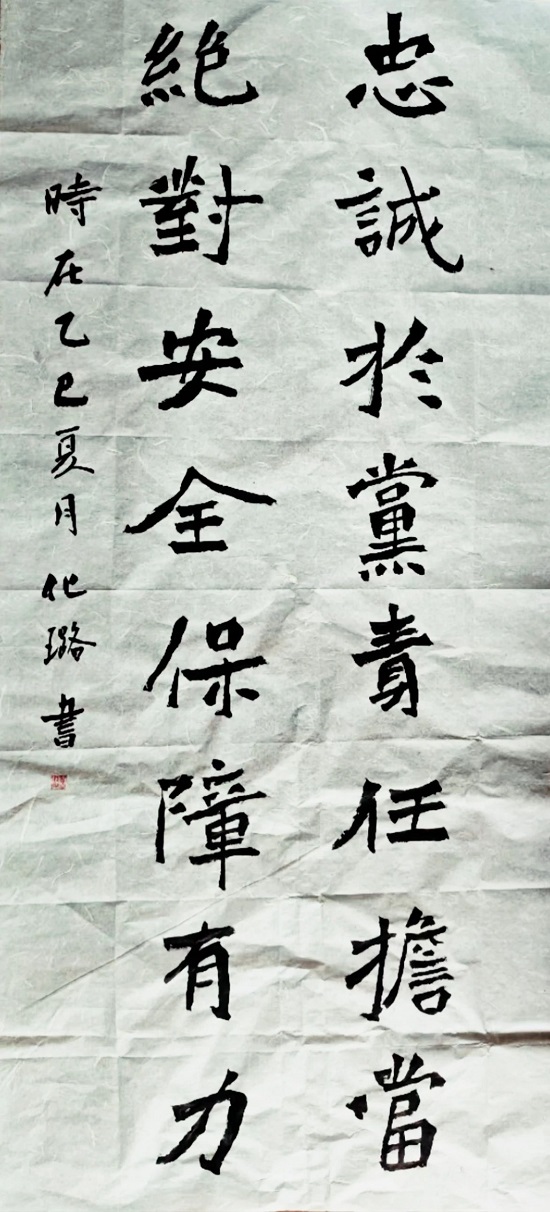 忠誠於黨責任擔當
絕對安全保障有力
時在乙巳夏月化璐書